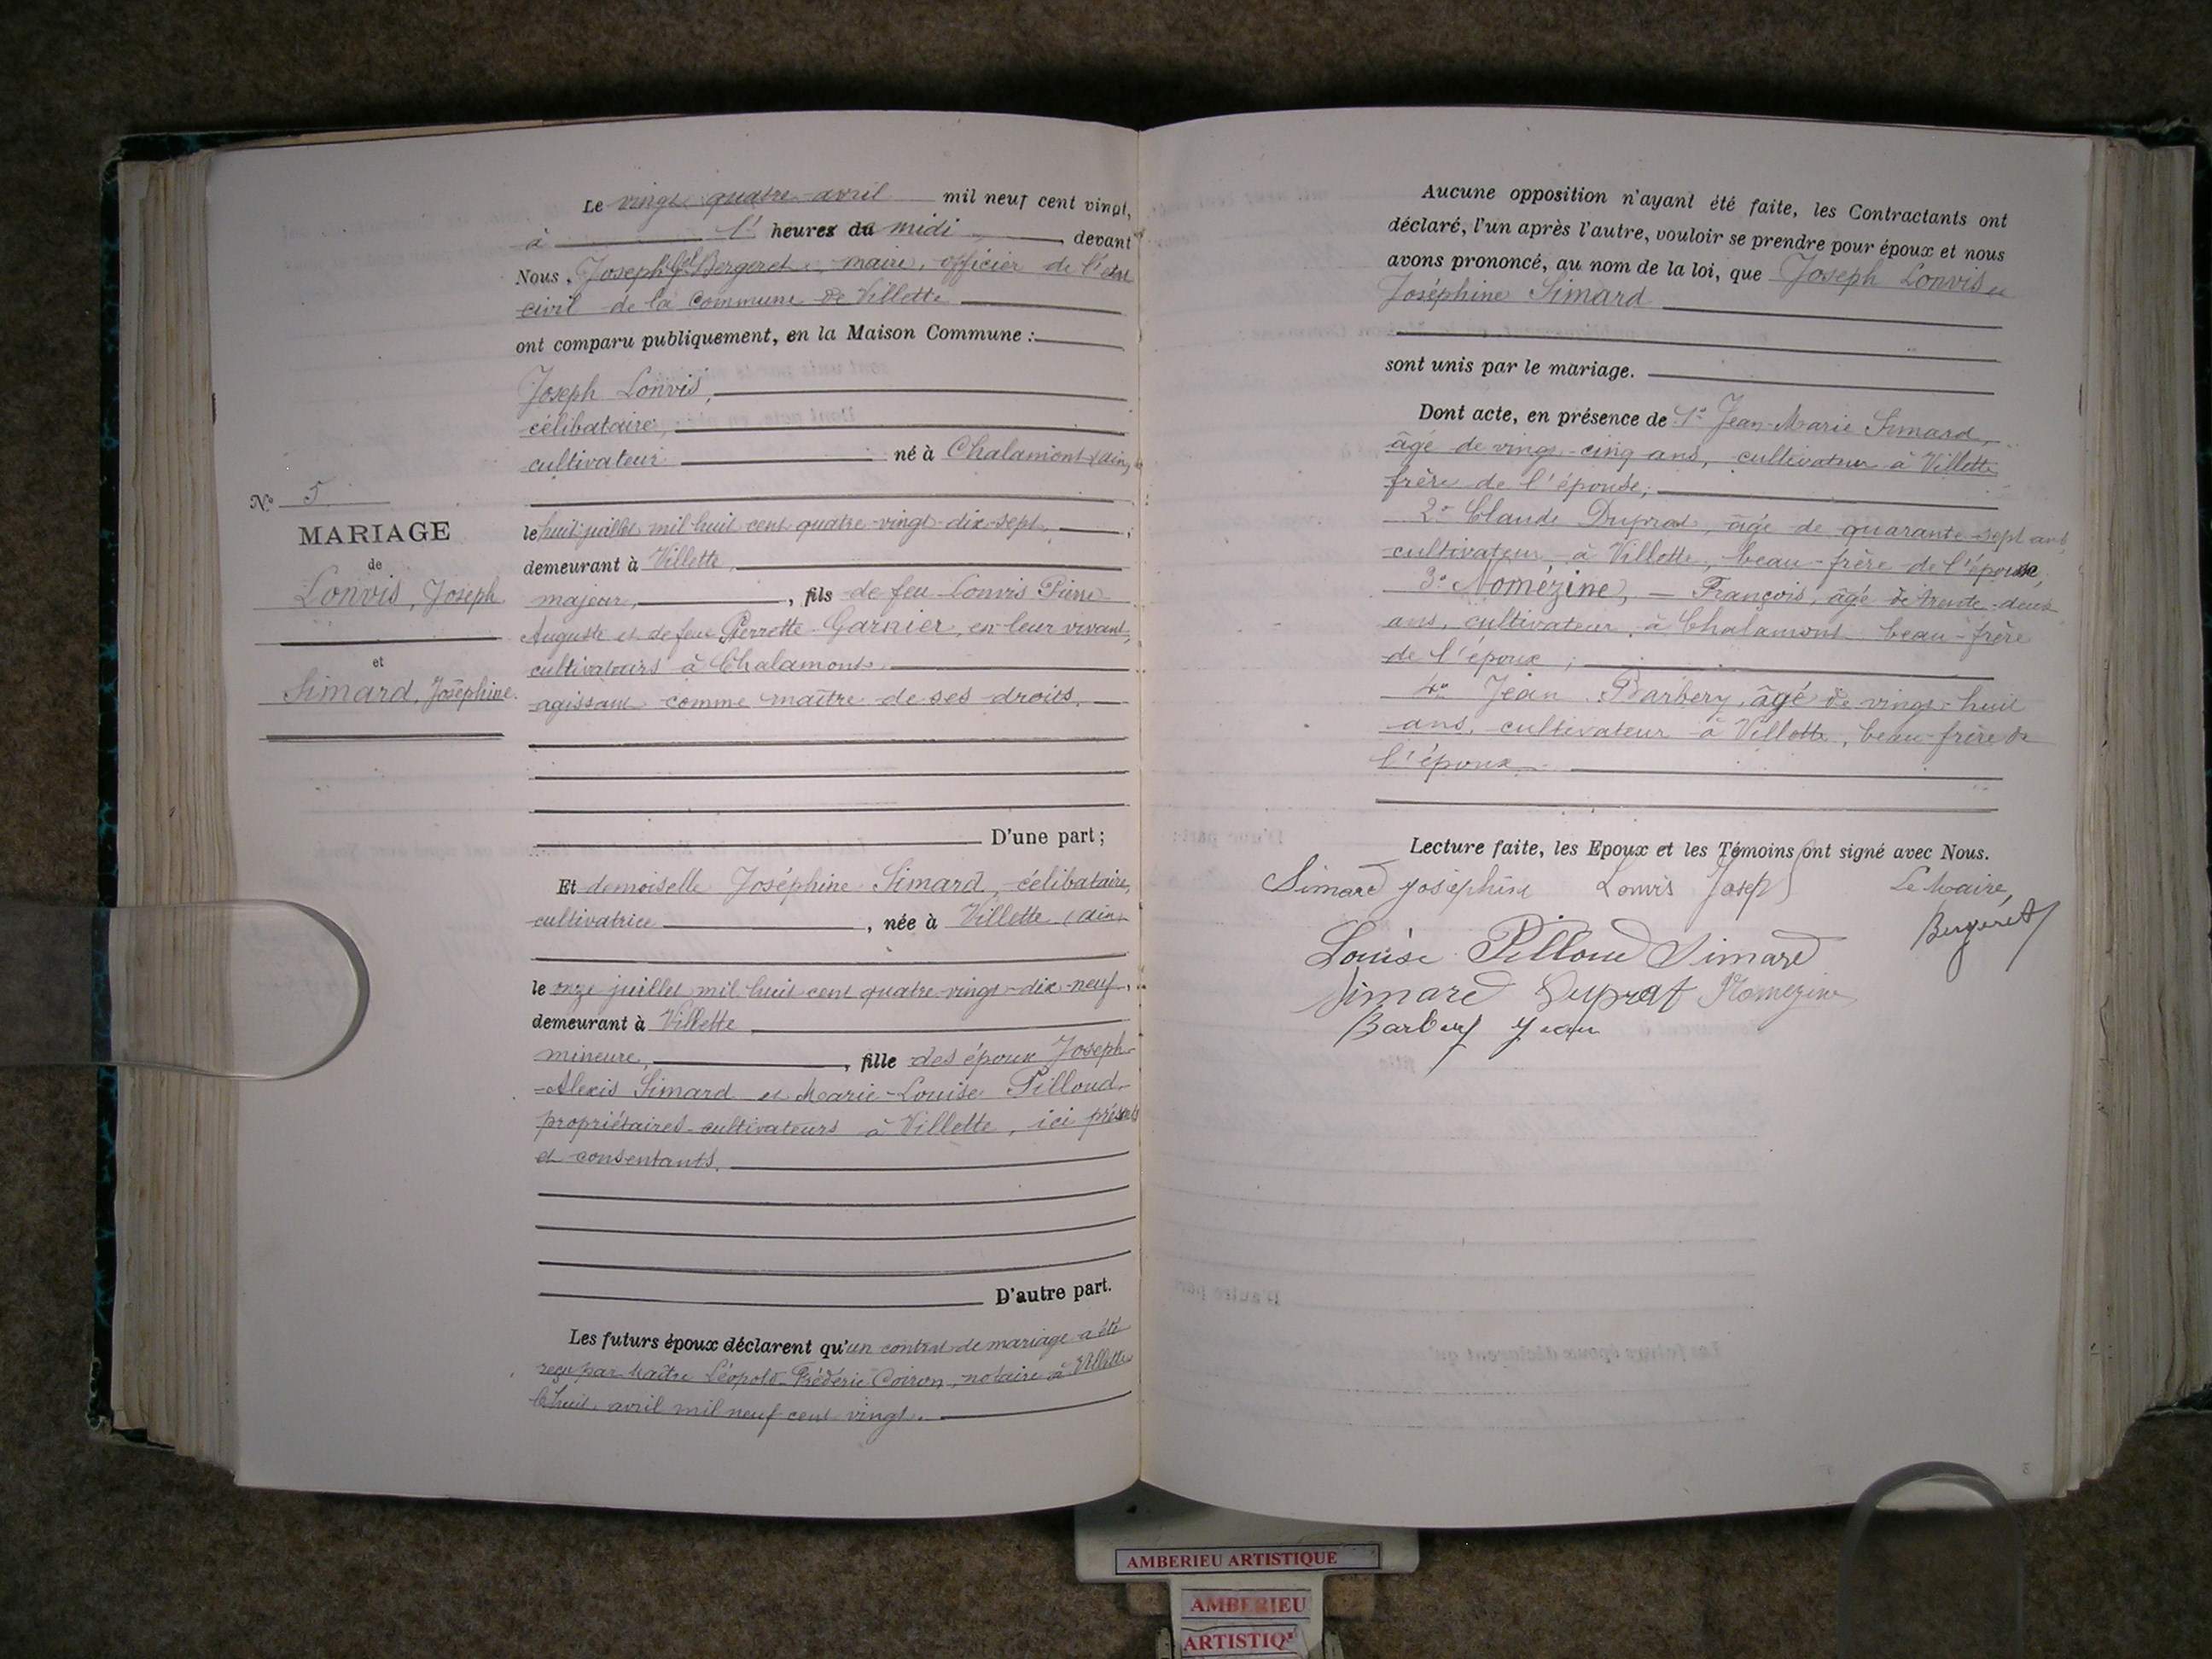 Le vingt quatre avril mil neuf cent vingt,
à heures du midi devant
Nous, Joseph Bergeret, maire, officier de l'état
civil de la Commune de Villette
ont comparu publiquement, en la Maison Commune :
Joseph Lonvis,
célibataire,
cultivateur né à Chalamont (ain)
le huit juillet mil huit cent quatre-vingt-dix-sept,
demeurant à Villette,
majeur, , fils de feu Lonvis Pierre
Auguste et de feu Pierrette Garnier, en leur vivant,
cultivateurs à Chalamont
agissant comme maître de ses droits.
D'une part ;
Et demoiselle Joséphine Simard, célibataire,
cultivatrice , née à Villette (ain)
le onze juillet mil huit cent quatre-vingt-dix-neuf,
demeurant à Villette
mineure, , fille des époux Joseph-
-Alexis Simard et Marie-Louise Pilloud
propriétaires-cultivateurs à Villette, ici présents
et consentants.
D'autre part.
Les futurs époux déclarent qu'un contrat de mariage a été
reçu par Maître Léopold-Frédéric Coiron, notaire à Villette
le huit avril mil neuf cent vingt.
No 5
MARIAGE
de
Lonvis, Joseph
et
Simard, Joséphine.
Aucune opposition n'ayant été faite, les Contractants ont
déclaré, l'un après l'autre, vouloir se prendre pour époux et nous
avons prononcé, au nom de la loi, que Joseph Lonvis et
Joséphine Simard
sont unis par le mariage.
Dont acte, en présence de 1° Jean-Marie Simard,
âgé de vingt-cinq ans, cultivateur à Villette
frère de l'épouse,
2° Claude Duprat, âgé de quarante-sept ans
cultivateur à Villette, beau-frère de l'épouse,
3° Nomézine, - François, âgé de trente-deux
ans, cultivateur, à Chalamont beau-frère
de l'époux ;
4° Jean Barbery, âgé de vingt-huit
ans, cultivateur à Villette, beau-frère de
l'époux.
Lecture faite, les Epoux et les Témoins ont signé avec Nous.
Simard Joséphine Lonvis Joseph Le Maire,
Bergeret
Louise Pilloud Simard
Simard Duprat Nomezine
Barbery Jean
AMBERIEU ARTISTIQUE
AMBERIEU
ARTISTIQ